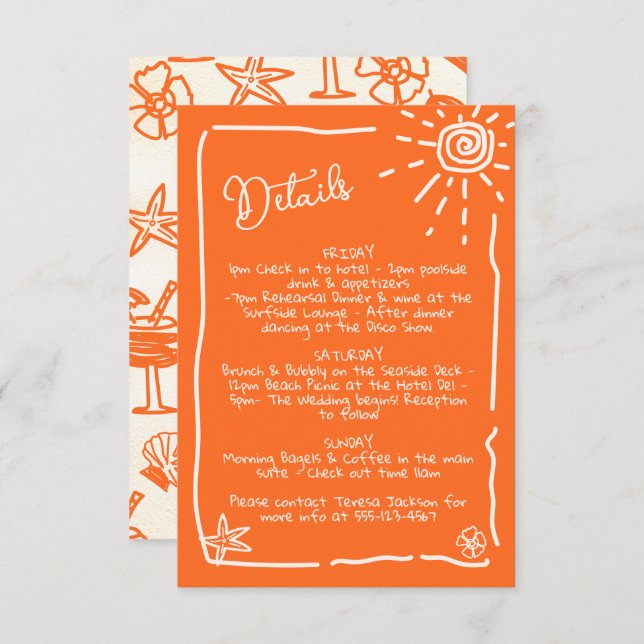 Details
FRIDAY
1pm Check in to hotel - 2pm poolside
drink & appetizers
-7pm Rehearsal Dinner & wine at the
Surfside Lounge - After dinner
dancing at the Disco Show.
SATURDAY
Brunch & Bubbly on the Seaside Deck -
12pm Beach Picnic at the Hotel Del -
5pm- The Wedding begins! Reception
to follow
SUNDAY
Morning Bagels & Coffee in the main
suite - Check out time 11am
Please contact Teresa Jackson for
more info at 555-123-4567